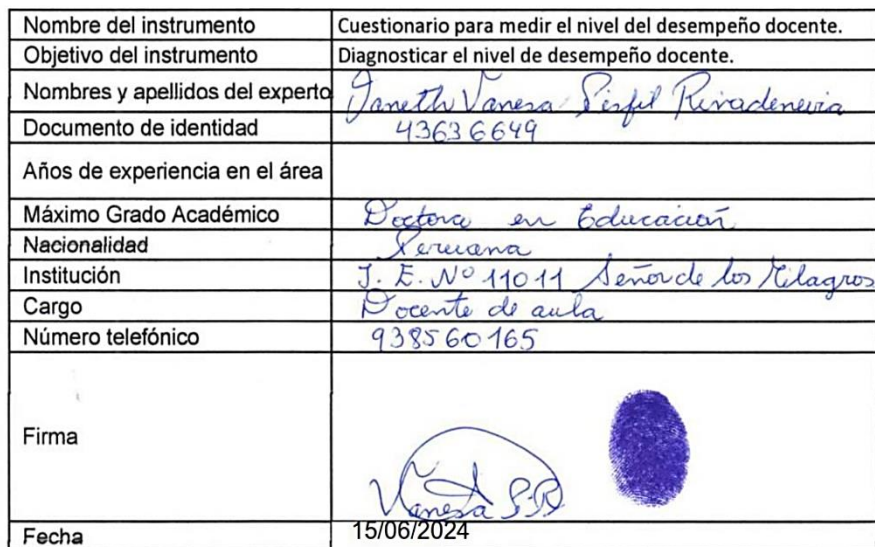 Nombre del instrumento Cuestionario para medir el nivel del desempeño docente.
Objetivo del instrumento Diagnosticar el nivel de desempeño docente.
Nombres y apellidos del experto Janeth Vanesa Pisfil Rivadeneira
Documento de identidad 43636649
Años de experiencia en el área
Máximo Grado Académico Doctora en Educación
Nacionalidad Peruana
Institución I. E. Nº 11011 Señor de los Milagros
Cargo Docente de aula
Número telefónico 938560165
Firma Vanesa P.R
Fecha 15/06/2024